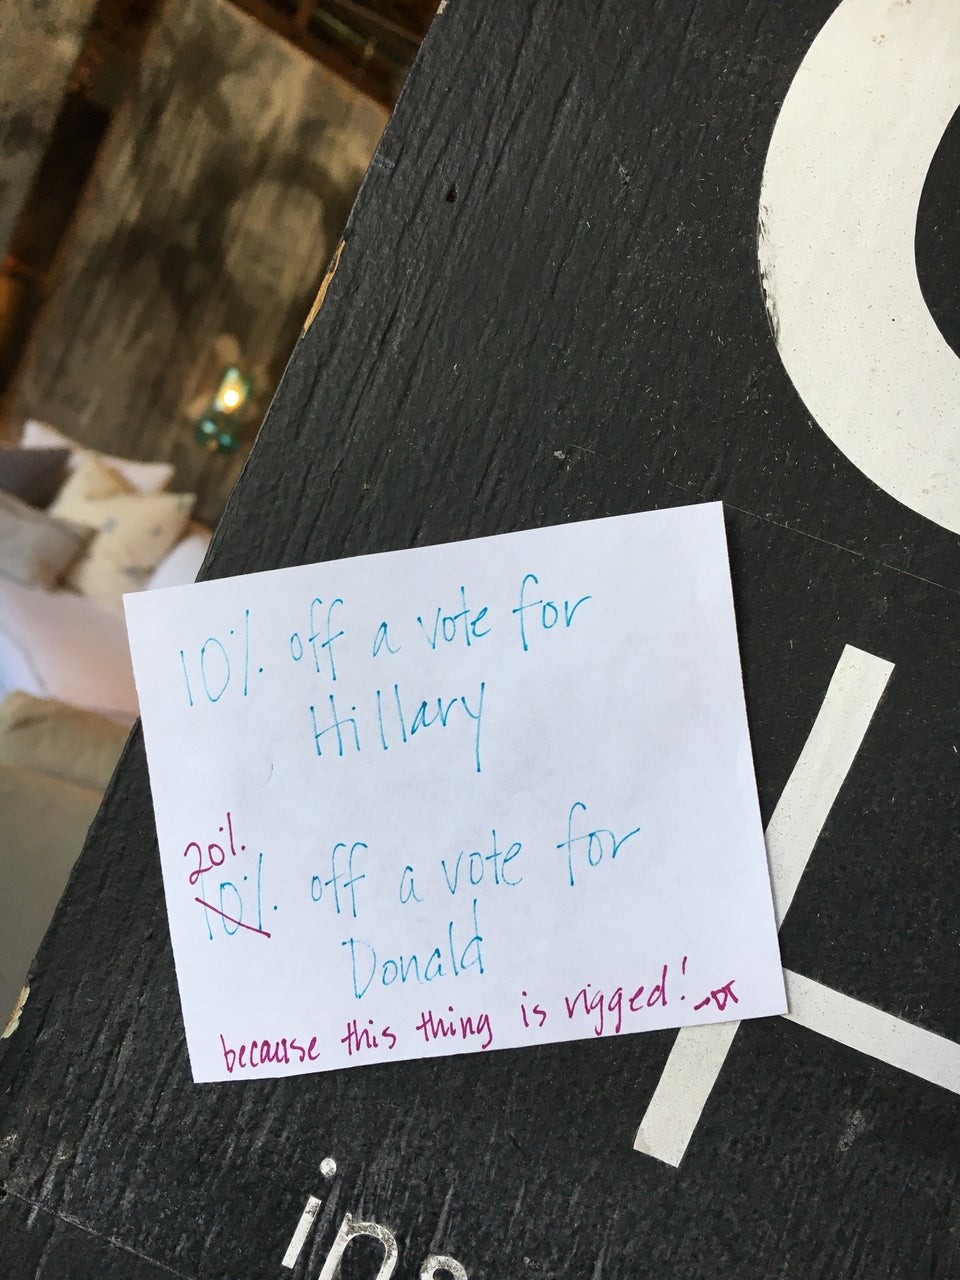 10% off a vote for
Hillary
20%
10% off a vote for
Donald
because this thing is rigged! -DT